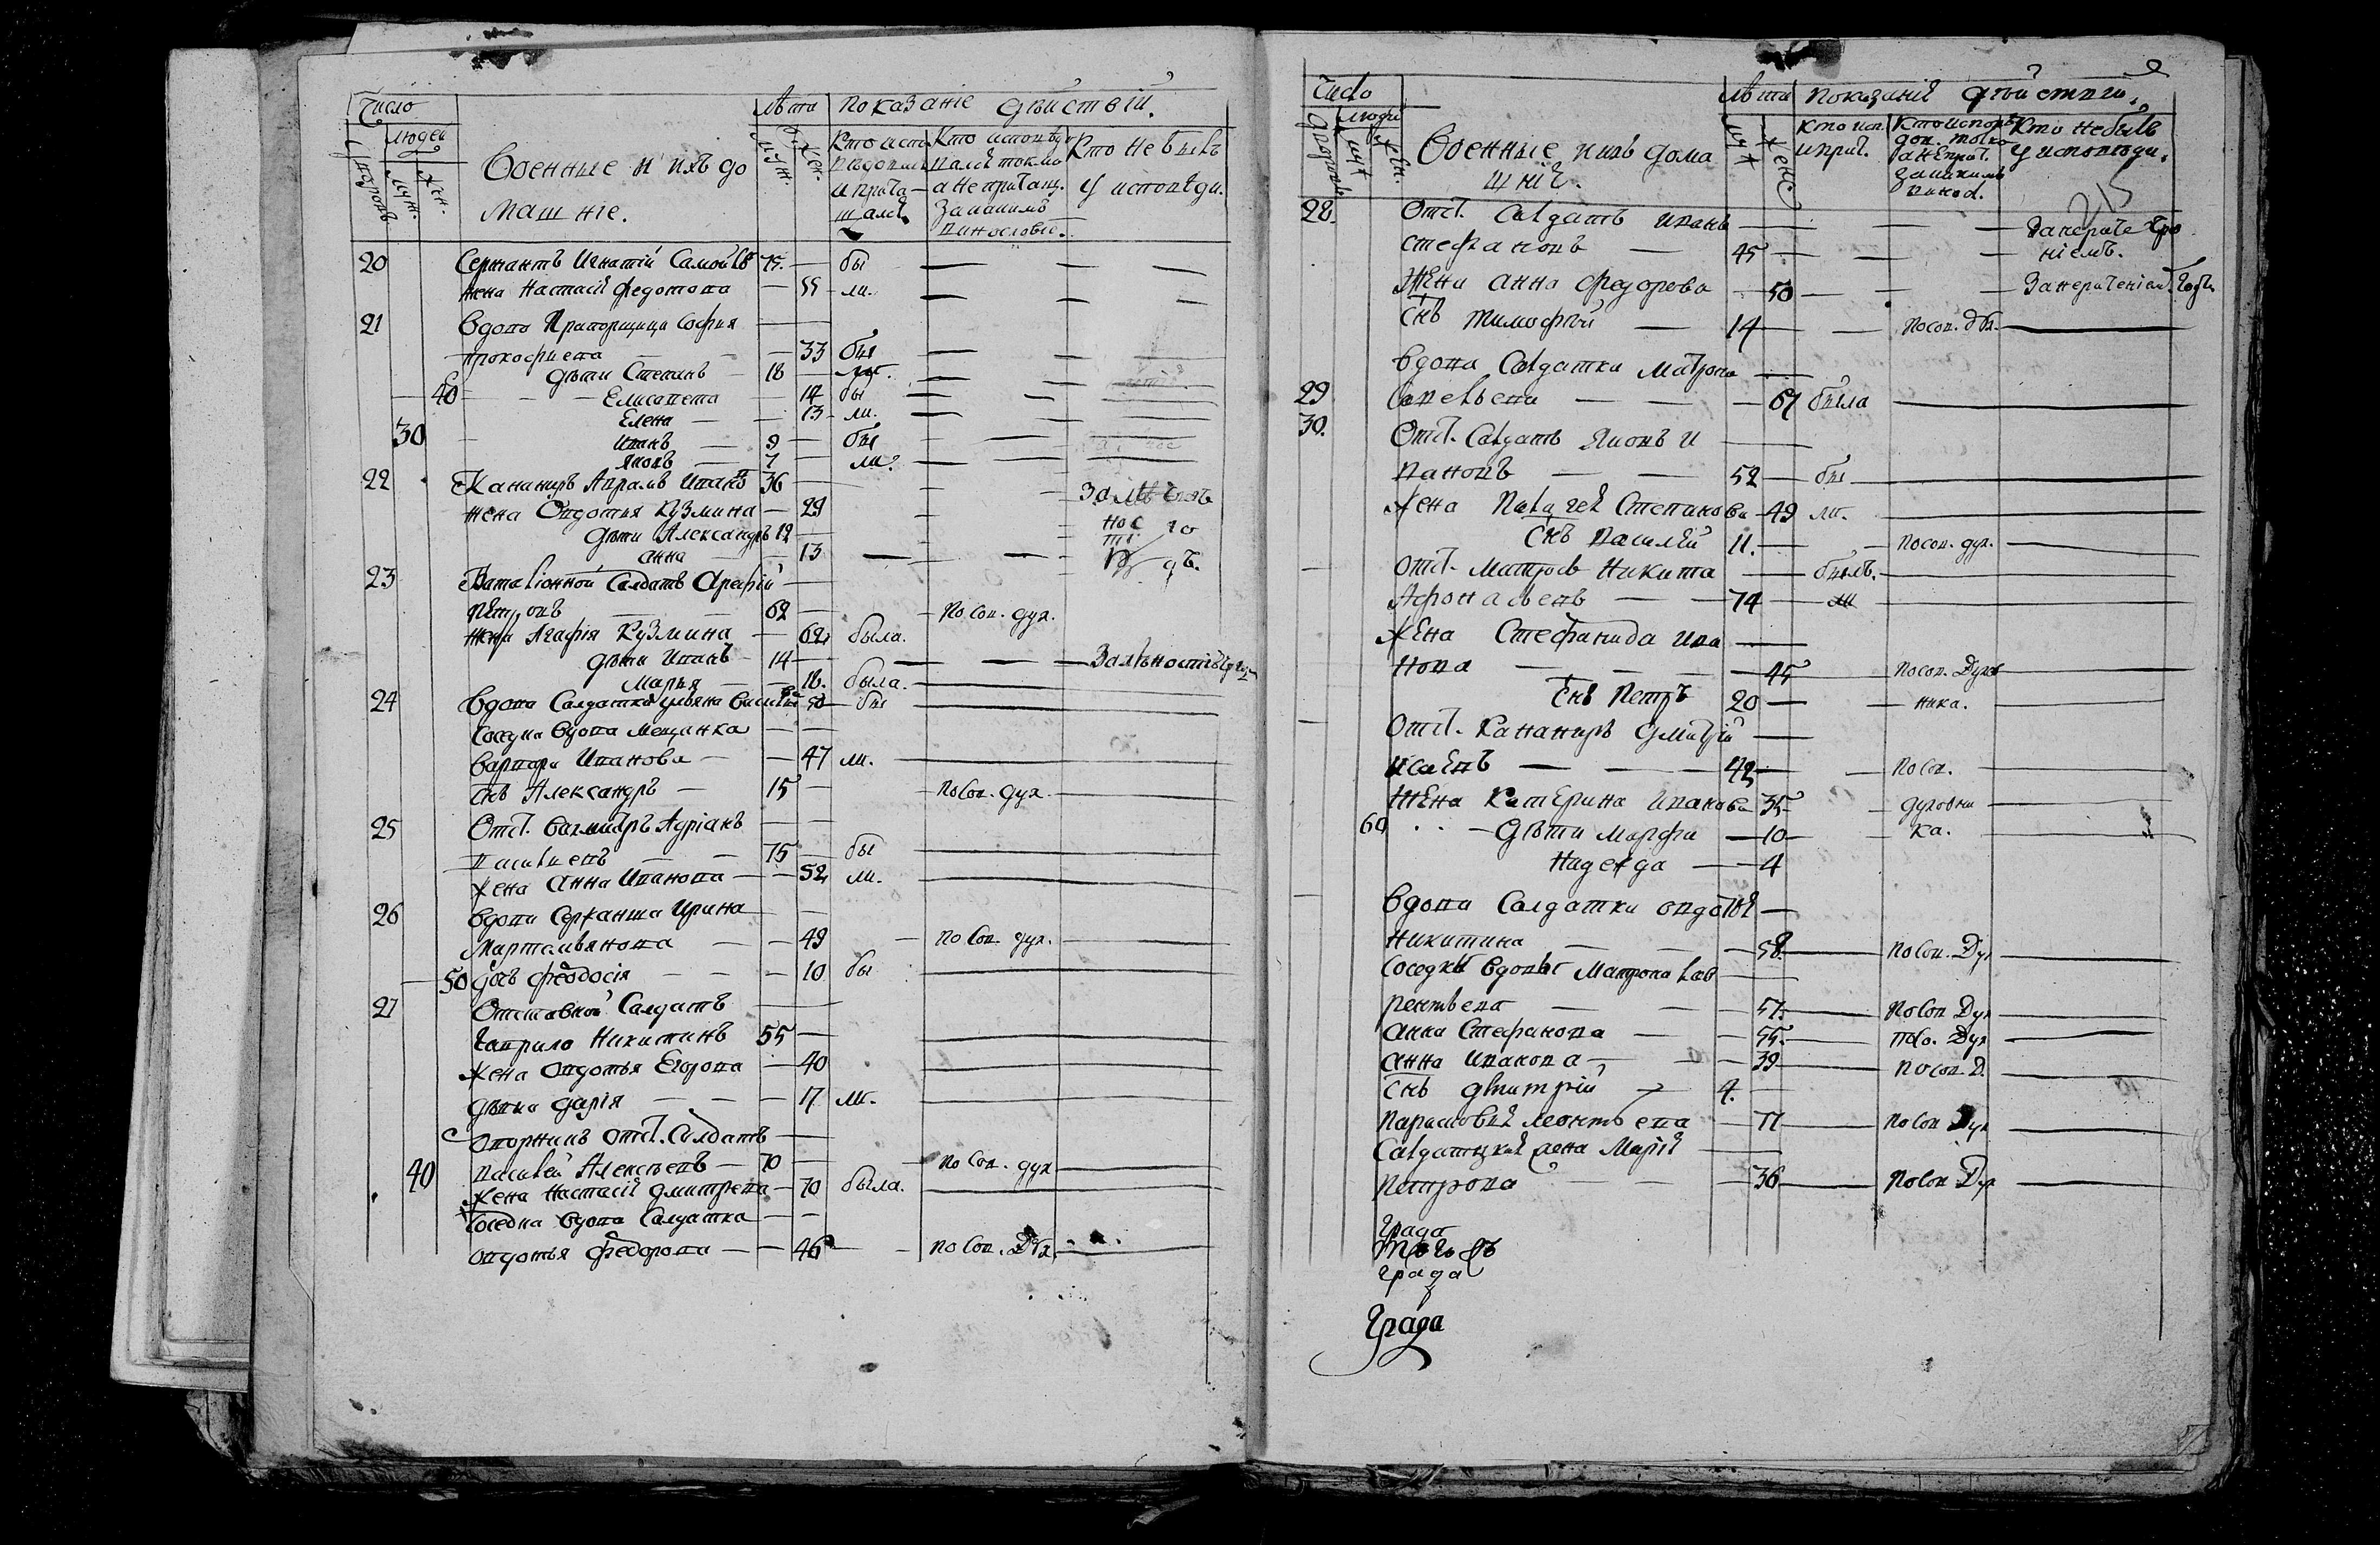 Число
Людей
Дворовъ
Муж.
Жен.
Военные и ихъ до
машніе.
Лѣта
Муж.
Жен.
Показаніе дѣйствій.
Кто исповѣдовались и прича-
щались
Кто исповѣдовались токмо
а не причащ.
За какимъ
винословіе.
Кто не былъ
у исповѣди.
20 Сержантъ Игнатій Самойловъ 75. бы
жена Настасія Федотова 55 ли.
21 Вдова Прапорщица Софія
Прокофиева 33 бы
дѣти Степанъ 18 ли.
40 Елисавета 14 бы
Елена 13 ли.
30 Иванъ 9 бы
Яковъ 7 ли.
22 Кананиръ Аврамъ Иванов 36
жена Овдотия Кузмина 29
дѣти Александръ 12
Анна 13
23 Баталіонной Салдатъ Арефій
Петровъ 62 По сов. дух.
жена Агафія Кузмина 62 была.
дѣти Иванъ 14
Марья 18. была.
24 Вдова Салдатка Ульяна 50 бы
Соседка вдова Мещанка
Варвара Иванова 47 ли.
снъ Александръ 15 По сов. дух.
25 Отст. Вахмитръ Адріанъ
Васильевъ 75 бы
жена Анна Иванова 52 ли.
26 Вдова Сержанша Ирина
Мартемьянова 49 По сов. дух.
50 дочь Феодосія 10 бы
27 Отставной Салдатъ
Гаврило Никитинъ 55
жена Овдотья Егорова 40
дѣвка Дарія 17 ли.
Сторжилъ отст. Салдатъ
40 Василей Алексѣевъ 70 По сов. дух
жена Настасія Дмитрева 70 была.
Соседка вдова Салдатка
Овдотья Федорова 46 По сов. Дух.
Число
Людей
Дворовъ
Муж
Жен.
Военные ихъ дома
щніе.
Лѣта
Муж
Жен
Показаніе дѣйствій.
Кто исп.
и прич.
Кто исповѣ
дов. токмо
а не прич.
за какимъ
винос.
Кто не былъ
у исповѣди.
215
28. Отст. Салдатъ Иванъ
Стефановъ 45
Жена Анна Федорова 50
снъ Тимофѣй 14 По сов. дх.
Вдова Салдатка Матрона
29 Савельева 67 была
30. Отст. Салдатъ Яковъ И
вановъ 52 бы
жена Палагея Степанова 49 ли.
снъ Василей 11. По сов. дух.
Отст. Матросъ Никита былъ.
Афонасьевъ 74
жена Стефанида Ива
нова 45 По сов. Духов
снъ Петръ 20 ника.
Отст. Кананиръ Дмитрій
Исаевъ 42 По сов.
Жена Катерина Иванова 35 духовни
60 дѣти Марфа 10 ка.
Надежда 4
Вдова Салдатка Овдотья
Никитина 58. По сов. Дух
Соседки вдовы Матрона Лав
рентьева 57. По сов Дух
Анна Стефанова 55. По со. Дух
Анна Иванова 39 По сов Д.
снъ Дмитрій 4.
Парасковия Леонтьева 77 По сов Дух
Салдатцкая жена Марія
Петрова 36 По сов Дух
Града
того жъ
града
Града